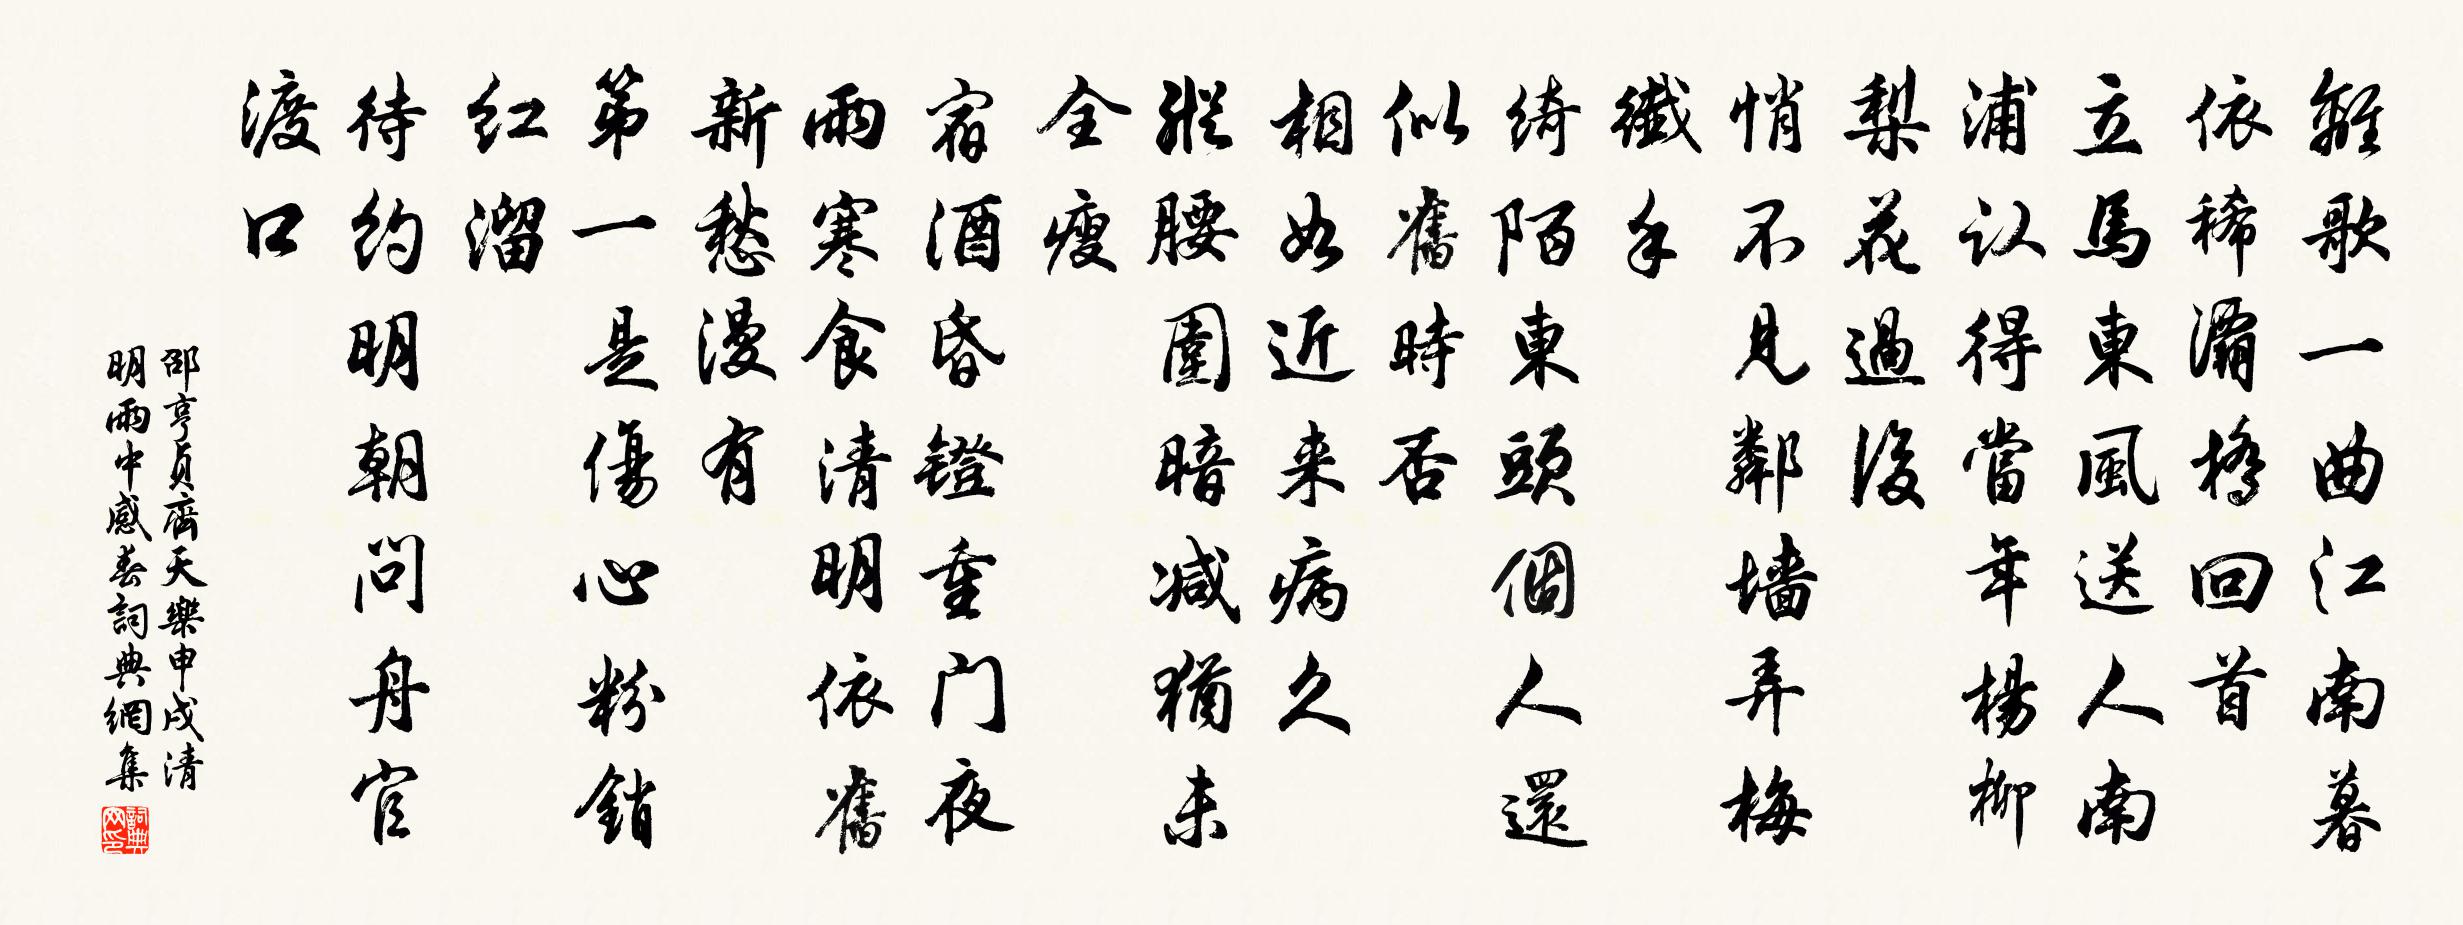 離歌一曲江南暮
依稀灞橋回首
立馬東風送人南
浦认得當年楊柳
梨花過後
悄不見鄰墙弄梅
纖手
綺陌東頭個人還
似舊時否
相如近来病久
縱腰圍暗减猶未
全瘦
宿酒昏镫重门夜
雨寒食清明依舊
新愁漫有
第一是傷心粉銷
红溜
待约明朝問舟官
渡口
邵亨貞齊天樂申戌清
明雨中感春詞典網集
詞典网印